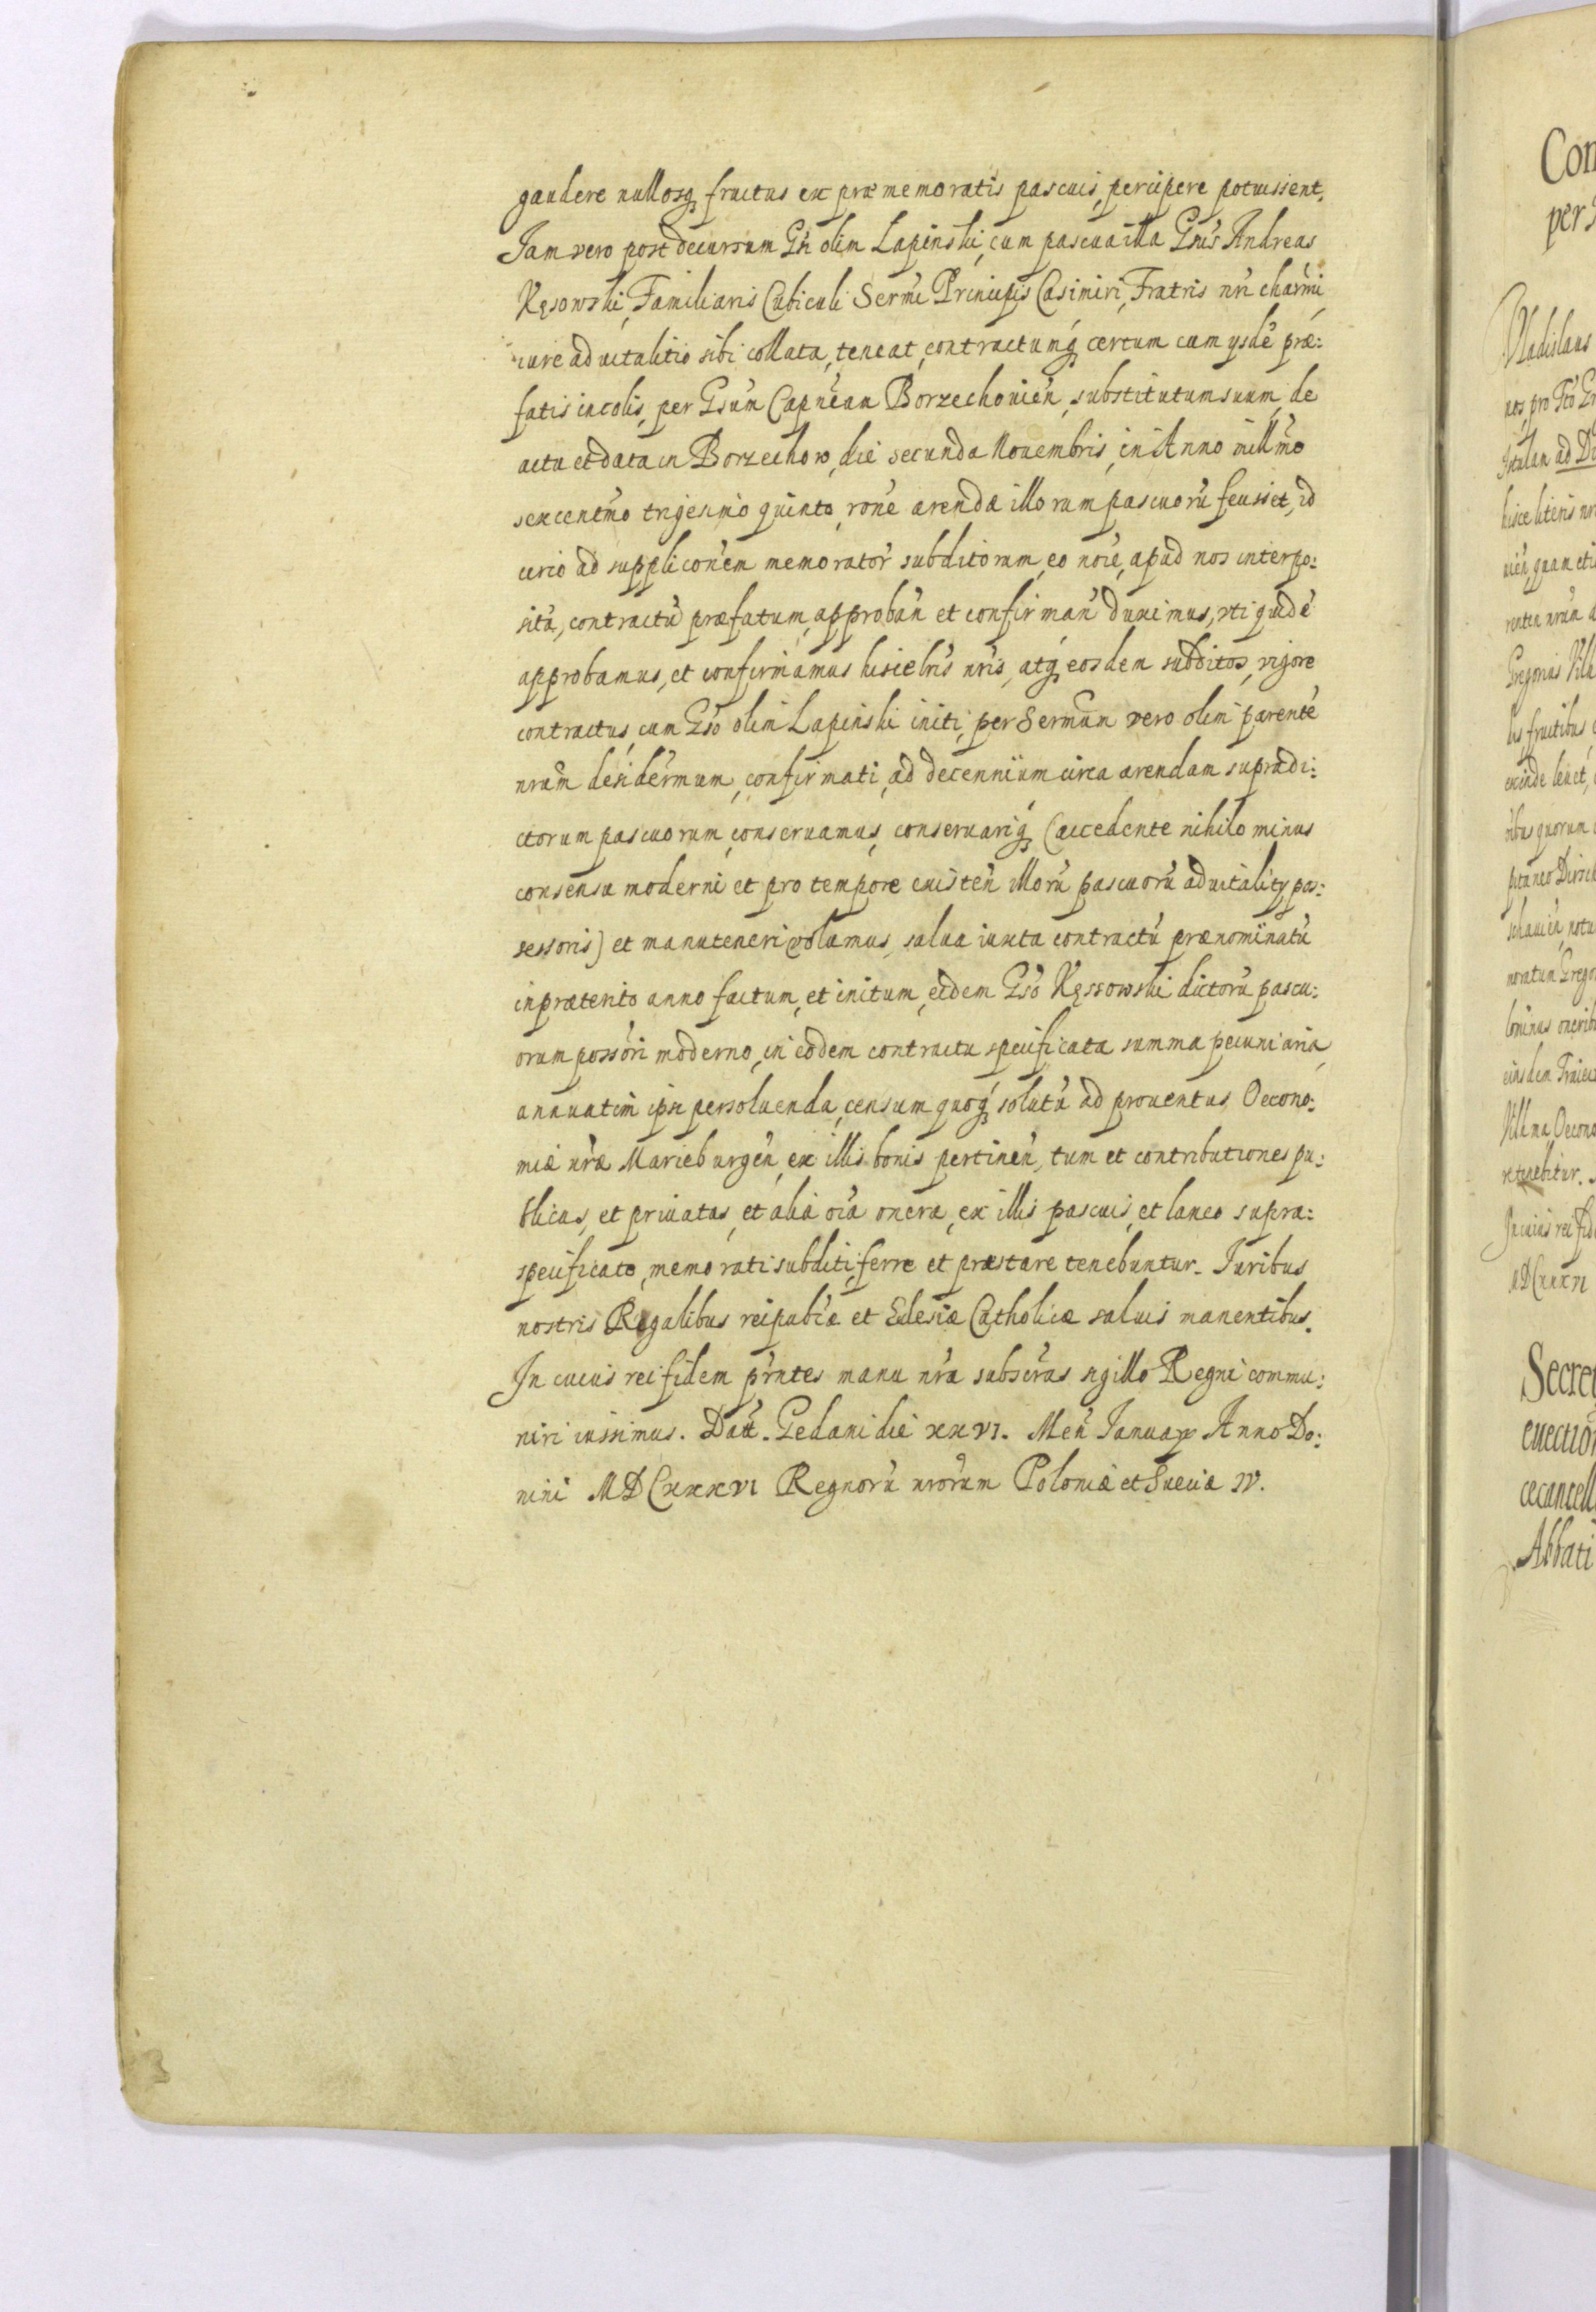 gaudere nullosq₃ fructus ex præmemoratis pascuis, percipere potuissent.
Jam vero post decursum Gñi olim Lapinski, cum pascua illa Gnus Andreas
Kęsowski, Familiaris Cubiculi Sermi Principis Casimiri, Fratris nri charmi
iure aduitalitio sibi collata, teneat, contractumq₃ certum cum ysdē præ:
fatis incolis, per Gsum Capneum Borzechouien, substitutum suum, de
actu et data in Borzechow, die secunda Nouembris, in Anno millmo
sexcentmo trigesimo quinto, rone arendæ illorum pascuorū fecisset, id
circo ad supplicōnem memorator subditorum, eo noīe, apud nos interpo:
sitā, contractū præfatum, approbān et confirmān duximus, vti quidē
approbamus, et confirmamus hisce lris nris, atq₃ eosdem subditos, vigore
contractus, cum Gso olim Lapinski initi, per Sermum vero olim parentē
nrum desidermum, confirmati, ad decennium circa arendam supradi:
ctorum pascuorum, conseruamus, conseruariq₃ (accedente nihilo minus
consensu moderni et pro tempore existeñ illorū pascuorū aduitality pos:
sessoris) et manuteneri volumus, salua iuxta contractū prænominatū
in præterito anno factum, et initum, eidem Gso Kęssowski dictorū pascu:
orum possori moderno, in eodem contractu specificata summa pecuniaria,
annuatim ipsi persoluenda, censum quoq₃ solutū ad prouentus Oecono:
miæ nræ Marieburgeñ, ex illis bonis pertineñ, tum et contributiones pu:
blicas, et priuatas, et alia oīa onera, ex illis pascuis, et laneo supra:
specificato, memorati subditi, ferre et præstare tenebuntur. Juribus
nostris Regalibus reipublcæ et Eclesiæ Catholicæ saluis manentibus.
In cuius rei fidem prntes manu nra subscras sigillo Regni commu:
niri iussimus. Datt. Gedani die xxvi. Meñ January Anno Do:
mini MDCxxxvi Regnorū nrorum Poloniæ et Sueciæ IV.
Con
per
Vladislaus
nos, pro
ad
hisce literis
quam
Gregorius
fructibus
exinde
quorum
Oecono
tenebitur.
In cuius rei
MDCxxxvi
Secret
euection
cecancell
Abbati